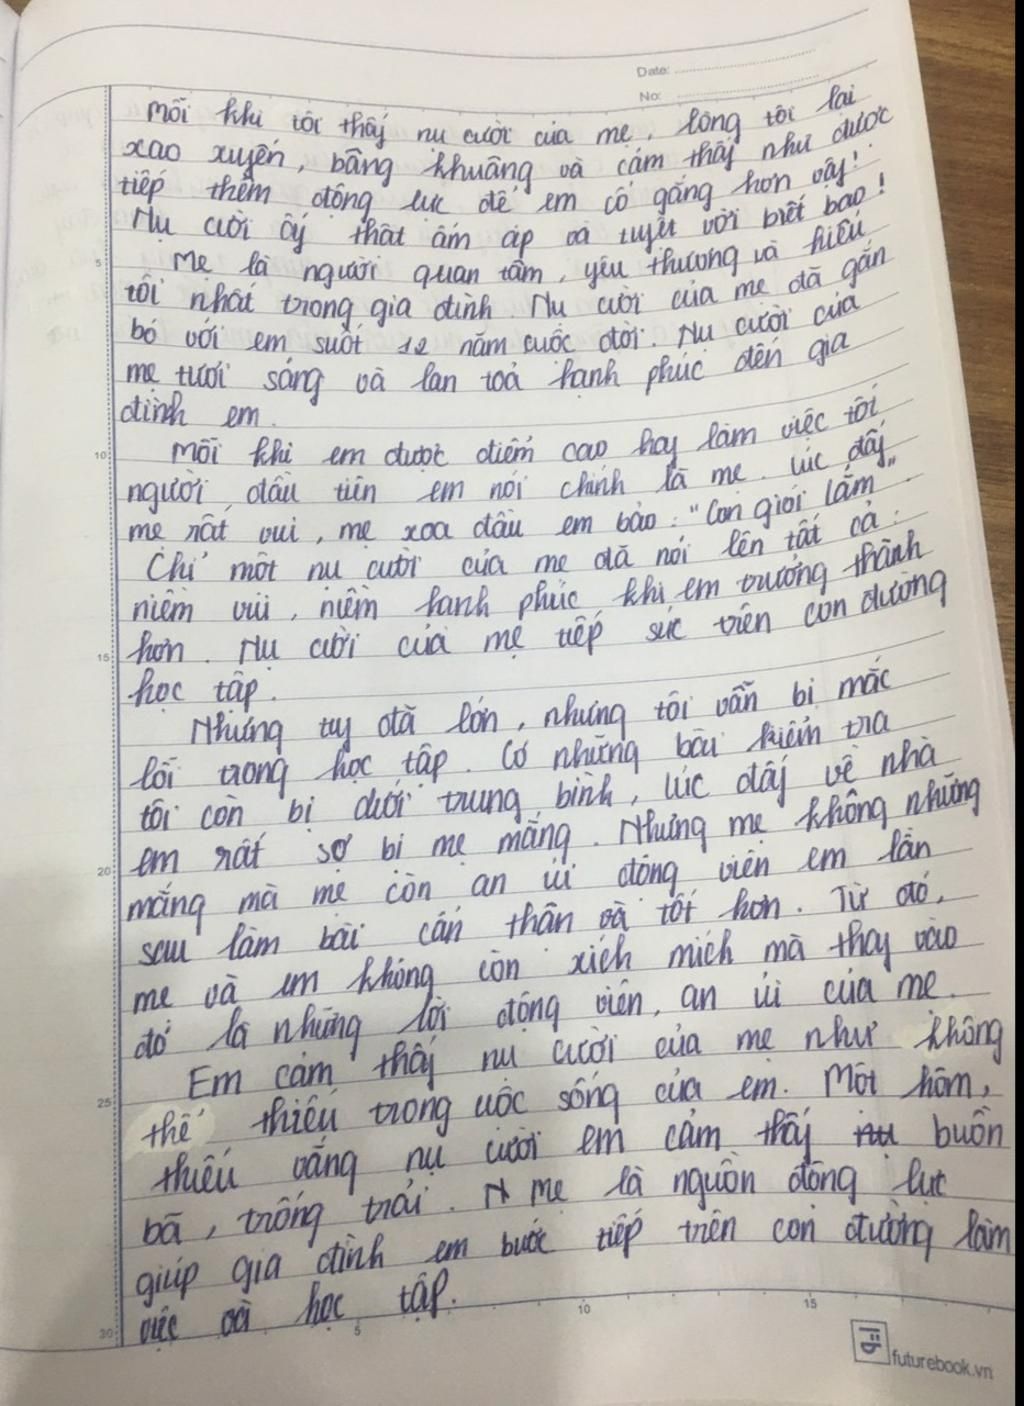 Date:
No:
Mỗi khi tôi thấy nụ cười của mẹ, lòng tôi lại
xao xuyến, bâng khuâng và cảm thấy như được
tiếp thêm động lực để em cố gắng hơn vậy!
Nụ cười ấy thật ấm áp và tuyệt vời biết bao!
5
Mẹ là người quan tâm, yêu thương và hiểu
tôi nhất trong gia đình Nụ cười của mẹ đã gắn
bó với em suốt 12 năm cuộc đời. Nụ cười của
mẹ tươi sáng và lan toả hạnh phúc đến gia
đình em.
10
Mỗi khi em được điểm cao hay làm việc tốt
người đầu tiên em nói chính là mẹ. Lúc đấy
mẹ rất vui, mẹ xoa đầu em bảo: "Con giỏi lắm".
Chỉ một nụ cười của mẹ đã nói lên tất cả:
niềm vui, niềm hạnh phúc khi em trưởng thành
15
hơn. Nụ cười của mẹ tiếp sức trên con đường
học tập.
Nhưng tuy đã lớn, nhưng tôi vẫn bị mắc
lỗi trong học tập. Có những bài kiểm tra
tôi còn bị dưới trung bình, lúc đấy về nhà
20
em rất sợ bị mẹ mắng. Nhưng mẹ không những
mắng mà mẹ còn an ủi động viên em lần
sau làm bài cẩn thận và tốt hơn. Từ đó,
mẹ và em không còn xích mích mà thay vào
đó là những lời động viên, an ủi của mẹ.
Em cảm thấy nụ cười của mẹ như không
25
thể thiếu trong uộc sống của em. Một hôm,
thiếu vắng nụ cười em cảm thấy buồn
bã, trống trải. Mẹ là nguồn động lực
giúp gia đình em bước tiếp trên con đường làm
30
việc và học tập.
5 10 15
futurebook.vn